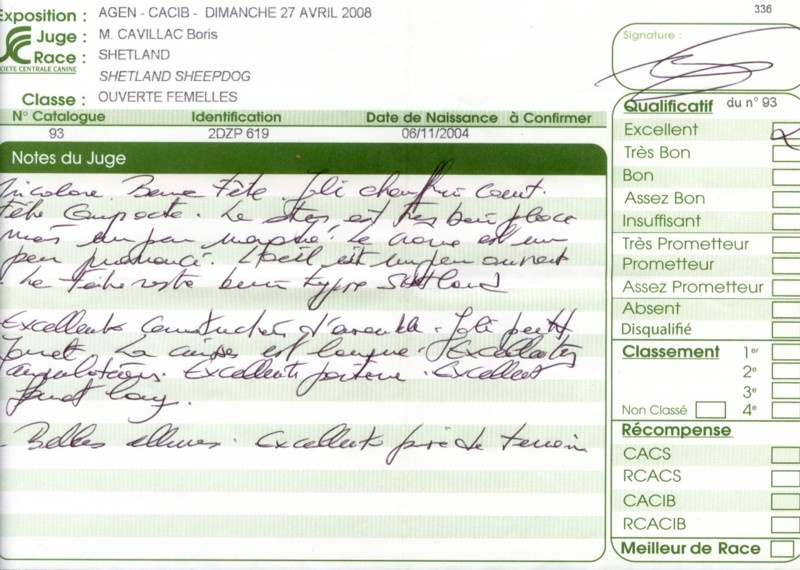 Exposition : AGEN - CACIB - DIMANCHE 27 AVRIL 2008
336
Juge : M. CAVILLAC Boris
Race : SHETLAND
SOCIETE CENTRALE CANINE
SHETLAND SHEEPDOG
Classe : OUVERTE FEMELLES
N° Catalogue Identification Date de Naissance à Confirmer
93 2DZP 619 06/11/2004
Notes du Juge
Tricolore. Bonne tête. Joli chanfrein
tête compacte. Le stop est très bien placé
mais un peu marqué. Le crane est un
peu prononcé. L'oeil est un peu ouvert
La tête reste bien type Shetland
Excellente construction d'ensemble. Joli petit
fouet. La cuisse est longue. Excellentes
angulations. Excellente. Excellent
fouet long.
- Belles allures. Excellente prise de terrain
Signature :
Qualificatif du n° 93
Excellent
Très Bon
Bon
Assez Bon
Insuffisant
Très Prometteur
Prometteur
Assez Prometteur
Absent
Disqualifié
Classement 1er
2e
3e
Non Classé 4e
Récompense
CACS
RCACS
CACIB
RCACIB
Meilleur de Race